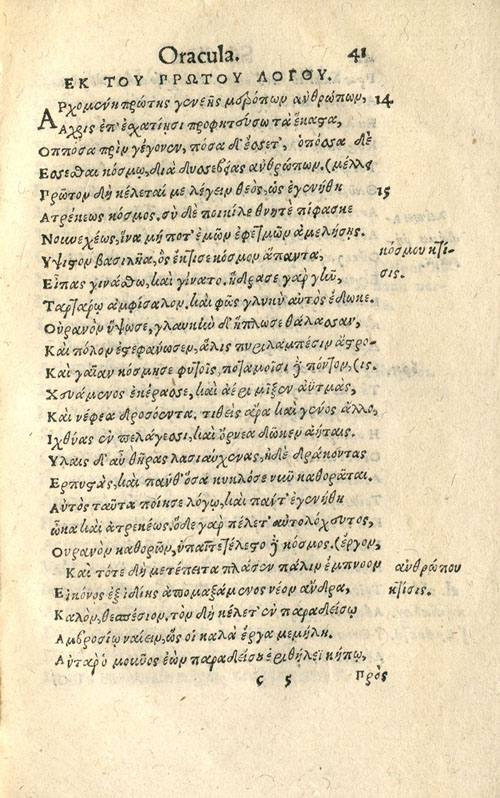 Oracula. 41
ΕΚ ΤΟΥ ΠΡΩΤΟΥ ΛΟΓΟΥ.
Αρχομένη πρώτης γενεῆς μερόπων ἀνθρώπων, 14
Αχρις ἐπ' ἐσχατίῃσι προφητεύσω τὰ ἕκαστα,
Οππόσα πρὶν γέγονεν, πόσα δ' ἔσετ', ὁπόσα δὲ
Εσεσθαι κόσμῳ, διὰ δυσσεβίας ἀνθρώπων. (μέλλει
Πρῶτον δὴ κέλεταί με λέγειν θεὸς, ὡς ἐγενήθη 15
Ατρέκεως κόσμος, σὺ δὲ ποικίλε θνητὲ πίφασκε
Νουνεχέως, ἵνα μή ποτ' ἐμῶν ἐφετμῶν ἀμελήσῃς.
Υψιστον βασιλῆα, ὃς ἔκτισε κόσμον ἅπαντα, κόσμου κτί-
Εἴπας γινάσθω, καὶ γίνατο. ἥδρασε γὰρ γῆν, σις.
Ταρτάρῳ ἀμφιβαλὼν. καὶ φῶς γλυκὺ αὐτὸς ἔδωκε.
Οὐρανὸν ὕψωσε, γλαυκὴν δ' ἥπλωσε θάλασσαν,
Καὶ πόλον ἐστεφάνωσεν, ἅλις πυριλαμπέσιν ἄστρο-
Καὶ γαῖαν κόσμησε φυτοῖς, ποταμοῖσι δὲ πόντον, (ις.
Χευάμενος ἐκέρασσε, καὶ ἀέρι μῖξεν ἀϋτμὰς,
Καὶ νέφεα δροσόεντα. τιθεὶς ἄρα καὶ γένος ἄλλο,
Ιχθύας ἐν πελάγεσσι, καὶ ὄρνεα δῶκεν ἀήταις.
Υλαις δ' αὖ θῆρας λασιαύχενας, ἠδὲ δράκοντας
Ερπυστὰς, καὶ πάνθ' ὅσα κυκλόσε νῦν καθορᾶται.
Αὐτὸς ταῦτα ποίησε λόγῳ, καὶ πάντ' ἐγενήθη
ὦκα καὶ ἀτρεκέως. ὅδε γὰρ πέλετ' αὐτολόχευτος,
Οὐρανὸν καθορῶν, ὕπαι τετέλεστο δὲ κόσμος. (ἔργον,
Καὶ τότε δὴ μετέπειτα πλάσεν πάλιν ἔμπνοον ἀνθρώπου
Εἰκόνος ἐξ ἰδίης ἀπομαξάμενος νέον ἄνδρα, κτίσις.
Καλὸν, θεσπέσιον. τὸν δὴ κέλετ' ἐν παραδείσῳ
Αμβροσίῳ ναίειν, ὥς οἱ καλὰ ἔργα μεμήλῃ.
Αὐτὰρ ὁ μοῦνος ἐὼν παραδείσου ἐριθηλέϊ κήπῳ,
c 5 Πρὸς